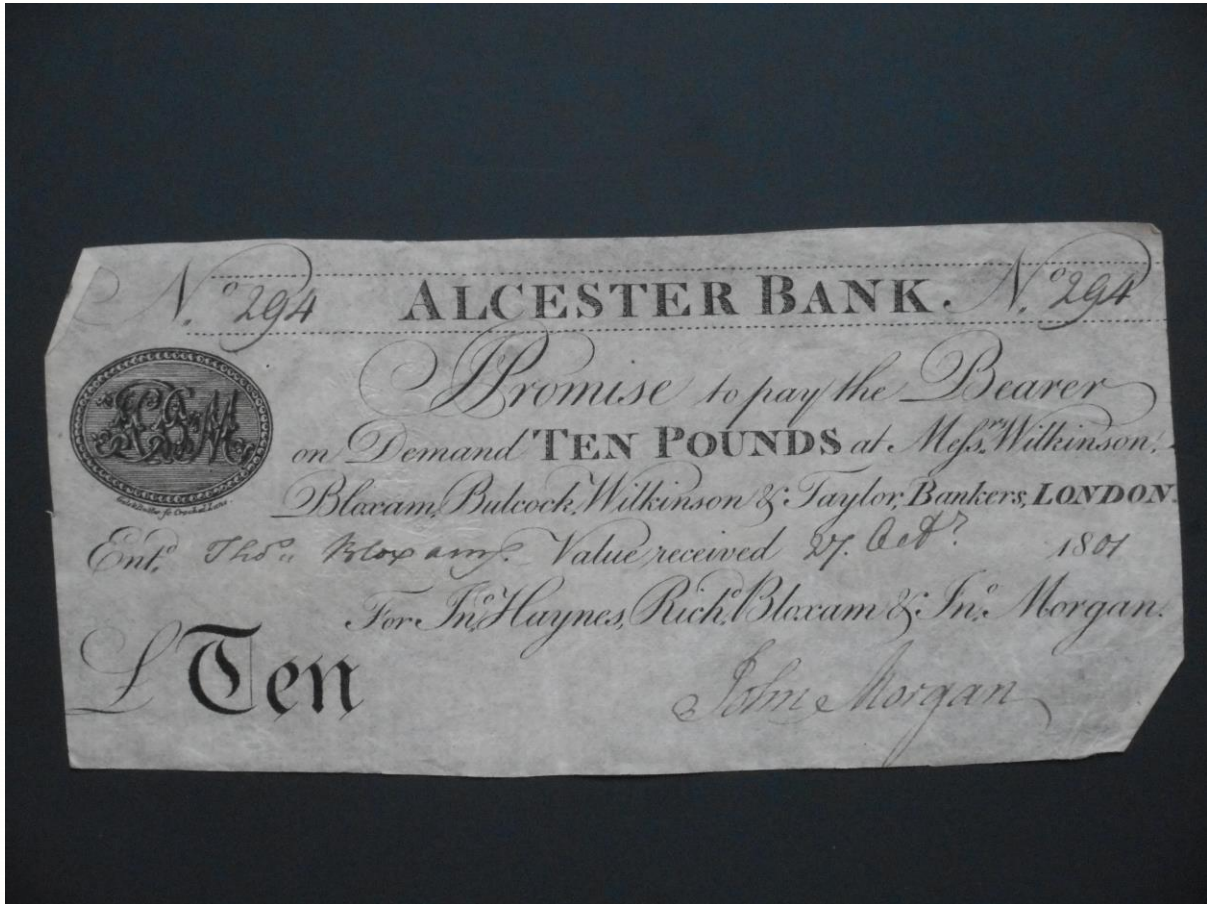 No. 294 ALCESTER BANK. No. 294
I Promise to pay the Bearer
on Demand TEN POUNDS at Meſsrs. Wilkinson,
Bloxam, Bulcock, Wilkinson & Taylor, Bankers, LONDON.
Entd. Thos. Bloxam Value received 27. Octr. 1801
For Jno. Haynes, Richd. Bloxam & Jno. Morgan.
£ Ten
John Morgan